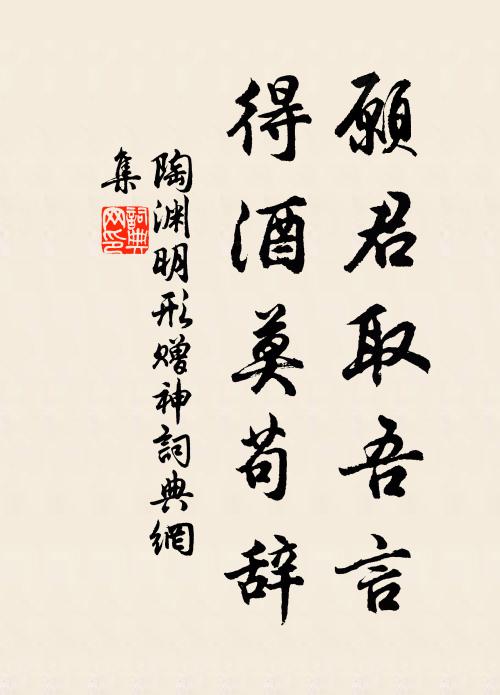 願君取吾言
得酒莫苟辞
陶渊明形赠神詞典網
集
詞典网印